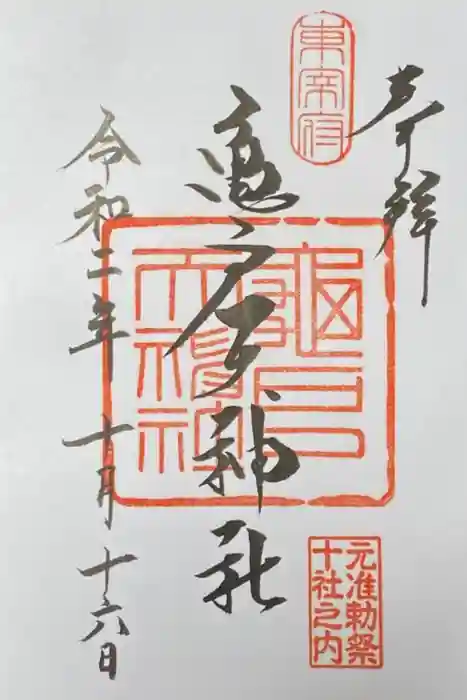 奉拝
東宰府
亀戸天神社
龜戸
元准勅祭
十社之内
令和二年 十月 十六日